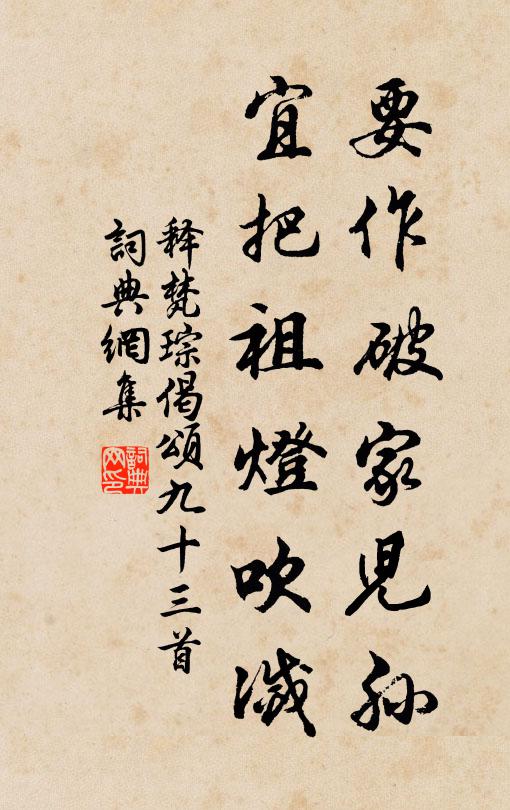 要作破家児孫
宜把祖燈吹滅
释梵琮偈頌九十三首
詞典網集
詞典
网印